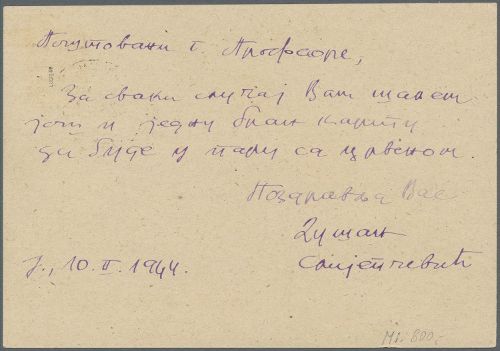 Поштовани г. Професоре,
За сваки случај Вам шаљем
још и једну браон карту
да буде у пару са црвеном.
Поздравља Вас
Душан
Ј., 10. II. 1944.
Mi. 600,-